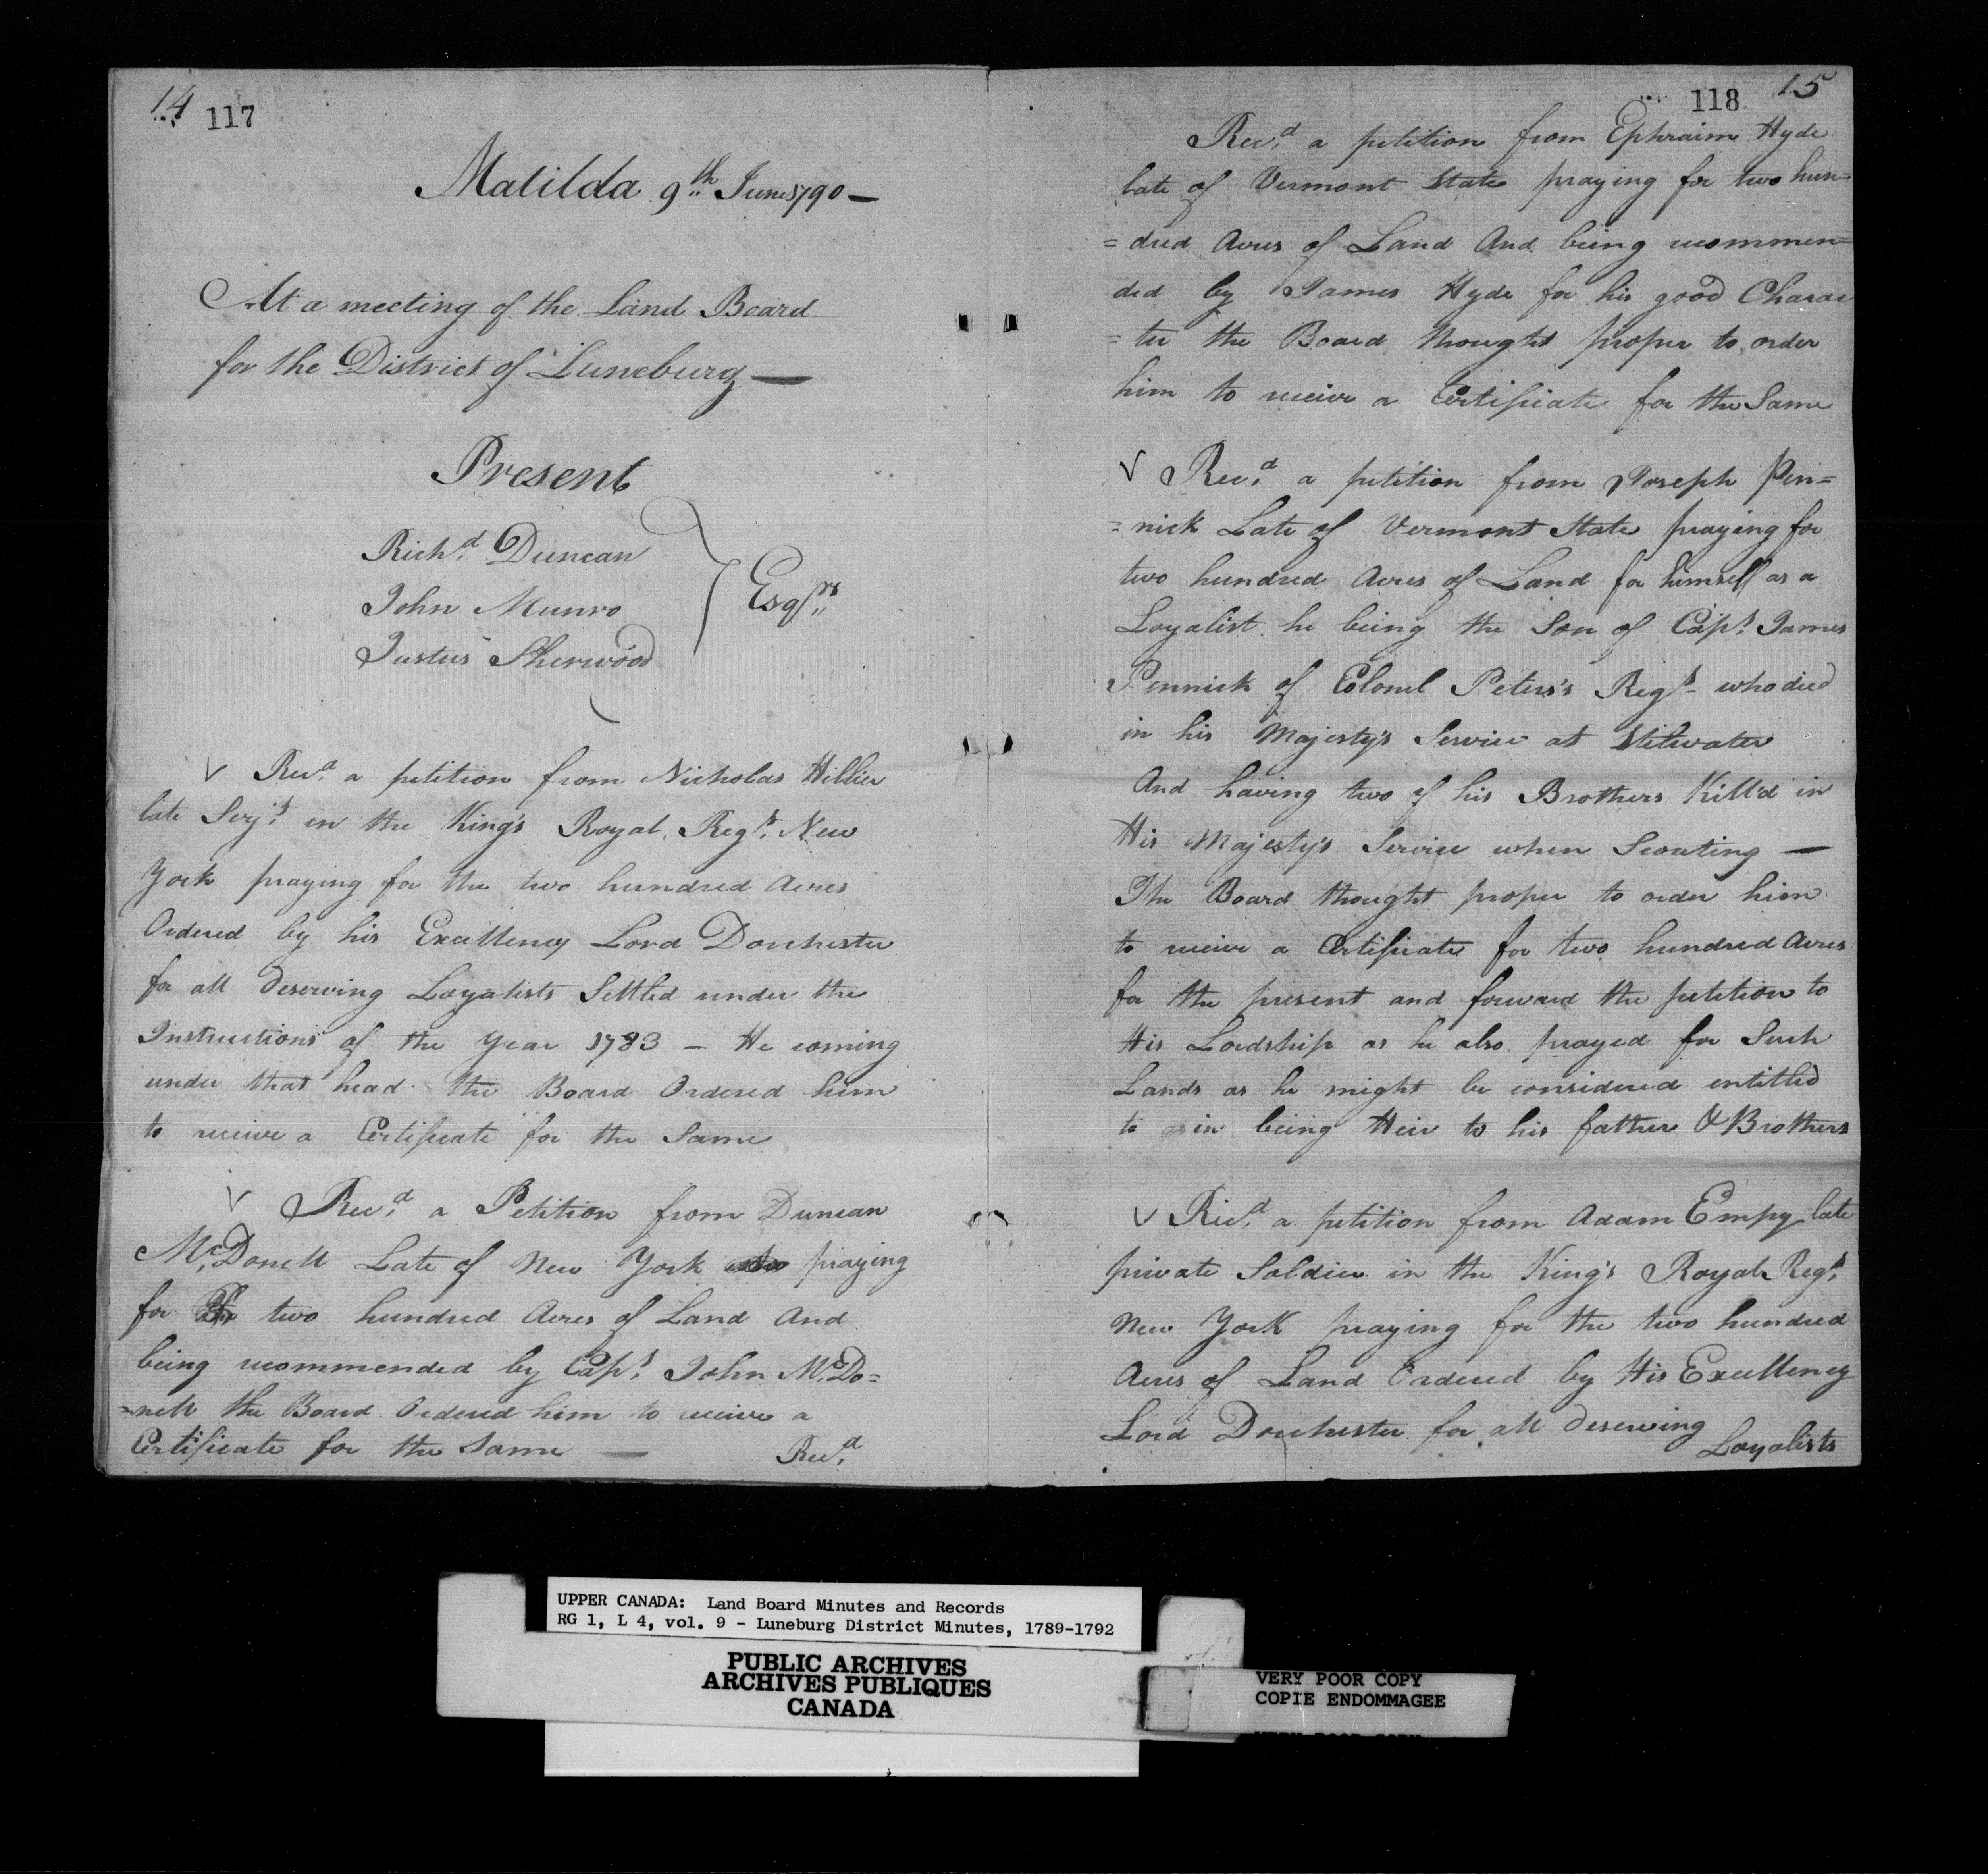 14
117
Matilda 9th June 1790 —
At a meeting of the Land Board
for the District of Luneburg —
Present
Richd Duncan
John Munro
Justus Sherwood
Esqrs
V Recd a petition from Nicholas Hillier
late Serjt in the King's Royal Regt New
York praying for the two hundred Acres
Ordered by his Excellency Lord Dorchester
for all deserving Loyalists Settled under the
Instructions of the Year 1783 — He coming
under that head the Board Ordered him
to receive a Certificate for the Same
V Recd a Petition from Duncan
McDonell Late of New York praying
for two hundred Acres of Land And
being recommended by Capt John McDo=
=nell the Board Ordered him to receive a
Certificate for the Same —
Recd
118
15
Recd a petition from Ephraim Hyde
late of Vermont State praying for two hun=
=dred Acres of Land And being recommen=
ded by James Hyde for his good Charac
=ter the Board thought proper to order
him to receive a Certificate for the Same
V Recd a petition from Joseph Pen=
=nick Late of Vermont State praying for
two hundred Acres of Land for himself as a
Loyalist he being the Son of Capt James
Pennick of Colonel Peters's Regt who died
in his Majesty's Service at Stilwater
And having two of his Brothers Kill'd in
His Majesty's Service when Scouting —
The Board thought proper to order him
to receive a Certificate for two hundred Acres
for the present and forward the petition to
His Lordship as he also prayed for Such
Lands as he might be considered entitled
to in being Heir to his father & Brothers
V Recd a petition from Adam Empy late
private Soldier in the King's Royal Regt
New York praying for the two hundred
Acres of Land Ordered by His Excellency
Lord Dorchester for all deserving
Loyalists
UPPER CANADA: Land Board Minutes and Records
RG 1, L 4, vol. 9 - Luneburg District Minutes, 1789-1792
PUBLIC ARCHIVES
ARCHIVES PUBLIQUES
CANADA
VERY POOR COPY
COPIE ENDOMMAGEE